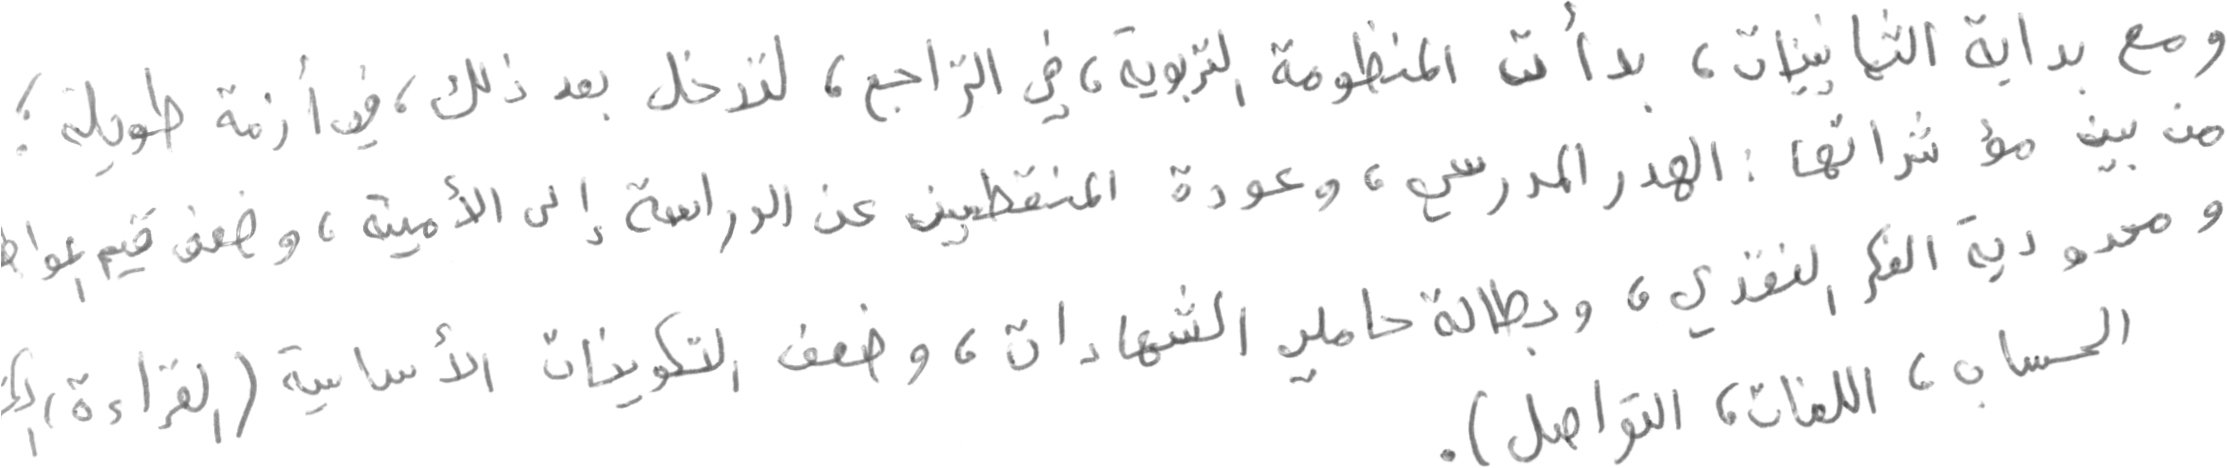 ومع بداية الثمانينات، بدأت المنظومة التربوية، في التراجع، لتدخل بعد ذلك، في أزمة طويلة؛
من بين مؤشراتها: الهدر المدرسي، وعودة المنقطعين عن الدراسة إلى الأمية، وضعف قيم
ومحدودية الفكر النقدي، وبطالة حاملي الشهادات، وضعف التكوينات الأساسية (القراءة،
الحساب، اللغات، التواصل).